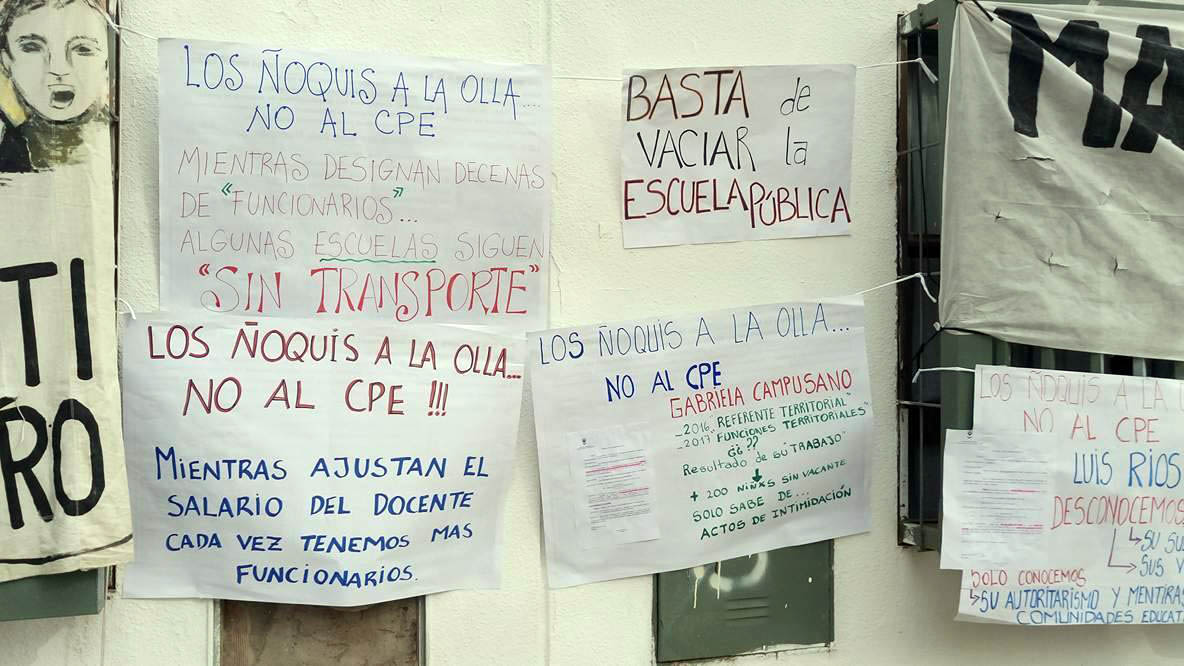 LOS ÑOQUIS A LA OLLA....
NO AL CPE
MIENTRAS DESIGNAN DECENAS
DE "FUNCIONARIOS"...
ALGUNAS ESCUELAS SIGUEN
"SIN TRANSPORTE"
BASTA de
VACIAR la
ESCUELA PÚBLICA
MA
TI
RO
LOS ÑOQUIS A LA OLLA...
NO AL CPE !!!
MIENTRAS AJUSTAN EL
SALARIO DEL DOCENTE
CADA VEZ TENEMOS MAS
FUNCIONARIOS.
LOS ÑOQUIS A LA OLLA...
NO AL CPE
GABRIELA CAMPUSANO
_2016 "REFERENTE TERRITORIAL"
_2017 "FUNCIONES TERRITORIALES"
¿¿??
Resultado de su "TRABAJO"
+ 200 NIÑXS SIN VACANTE
SOLO SABE DE...
ACTOS DE INTIMIDACIÓN
LOS ÑOQUIS A LA
NO AL CPE
LUIS RIOS
DESCONOCEMOS
SU SU
SUS V
SOLO CONOCEMOS
SU AUTORITARISMO Y MENTIRAS
COMUNIDADES EDUCATI